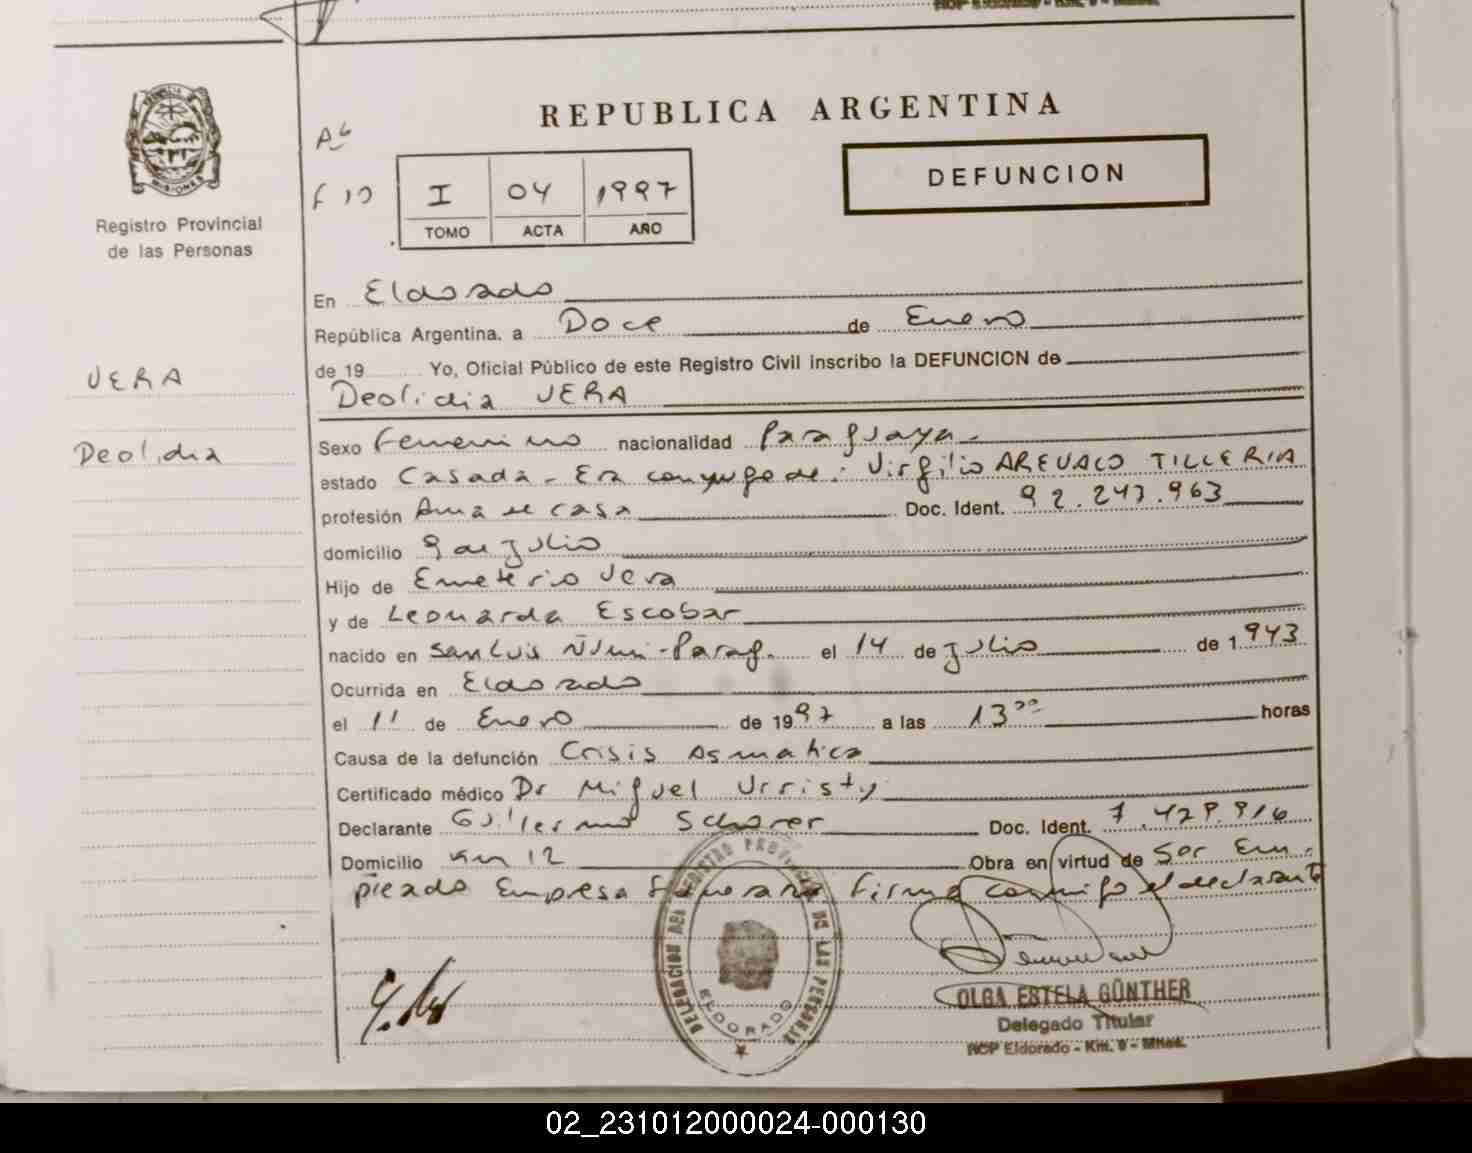 REPUBLICA ARGENTINA
DEFUNCION
I 04 1997
TOMO ACTA AÑO
MISIONES
Registro Provincial
de las Personas
VERA
Deolidia
En Eldorado
República Argentina, a Doce de Enero
de 19 Yo, Oficial Público de este Registro Civil inscribo la DEFUNCION de
Deolidia VERA
Sexo Femenino nacionalidad Paraguaya.
estado Casada - Era conyuge de: Virgilio AREVALO TILLERIA
profesión Ama de casa Doc. Ident. 92.247.963
domicilio 9 de Julio
Hijo de Emeterio Vera
y de Leonarda Escobar
nacido en San Luis Ñumi-Parag. el 14 de Julio de 1943
Ocurrida en Eldorado
el 11 de Enero de 1997 a las 13⁰⁰ horas
Causa de la defunción Crisis Asmatica
Certificado médico Dr Miguel Urristy
Declarante Guillermo Scherer Doc. Ident. 7.429.916
Domicilio Km 12 Obra en virtud de Ser Em-
pleado Empresa Funeraria Firma conmigo el declarante
DELEGACION DEL REGISTRO PROVINCIAL DE LAS PERSONAS
ELDORADO
OLGA ESTELA GÜNTHER
Delegado Titular
RCP Eldorado - Km. 9 - Mnes.
02_231012000024-000130